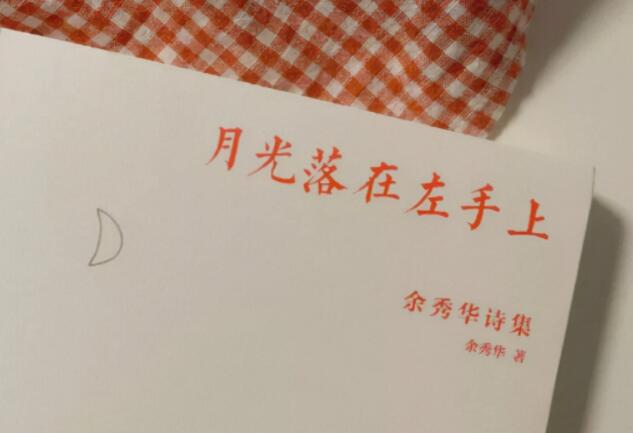 月光落在左手上
余秀华诗集
余秀华 著